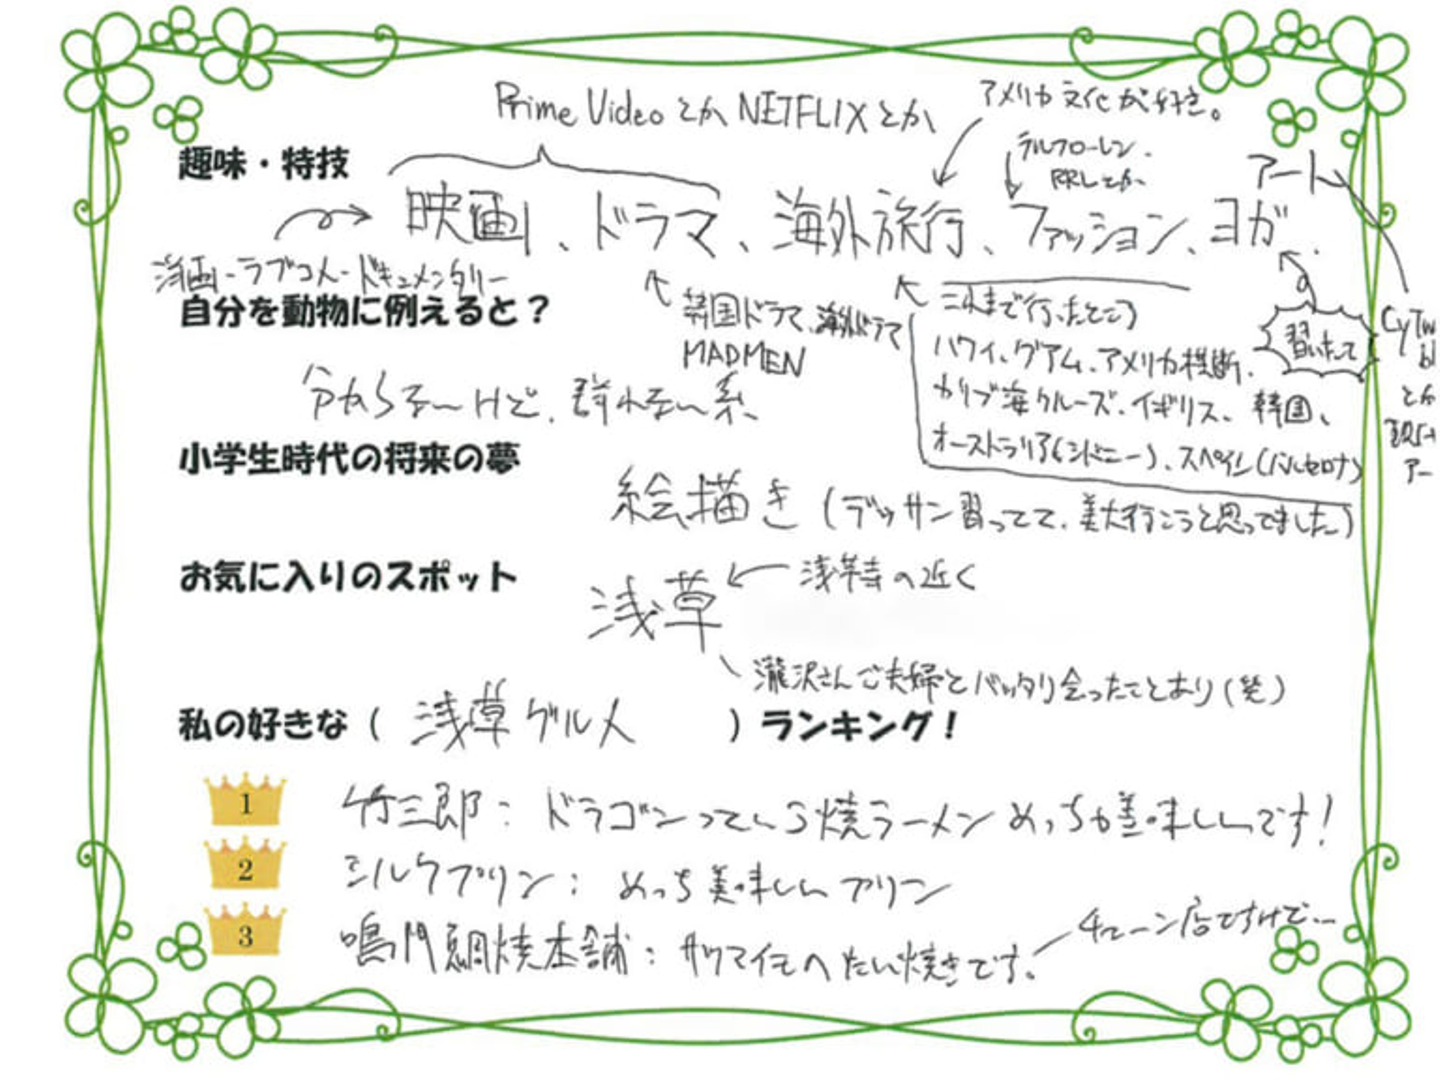 Prime VideoとかNETFLIXとか
アメリカ文化が好き。
ラルフローレン、
RRLとか
趣味・特技
アート
映画、ドラマ、海外旅行、ファッション、ヨガ、
洋画-ラブコメ-ドキュメンタリー
韓国ドラマ、海外ドラマ
MADMEN
これまで行ったところ
ハワイ、グアム、アメリカ横断、
カリブ海クルーズ、イギリス、韓国、
オーストラリア(シドニー)、スペイン(バルセロナ)
習いたて
CyTw
bl
とか
現代
アー
自分を動物に例えると？
分からないけど、群れない系、
小学生時代の将来の夢
絵描き(デッサン習ってて、美大行こうと思ってました)
お気に入りのスポット
浅草
浅草寺の近く
瀧沢さんご夫婦とバッタリ会ったことあり(笑)
私の好きな（浅草グルメ）ランキング！
1 竹三郎：ドラゴンっていう焼ラーメンめっちゃ美味しいです！
2 シルクプリン：めっち美味しいプリン
3 鳴門鯛焼本舗：サツマイモのたい焼きです。
チェーン店ですけど…